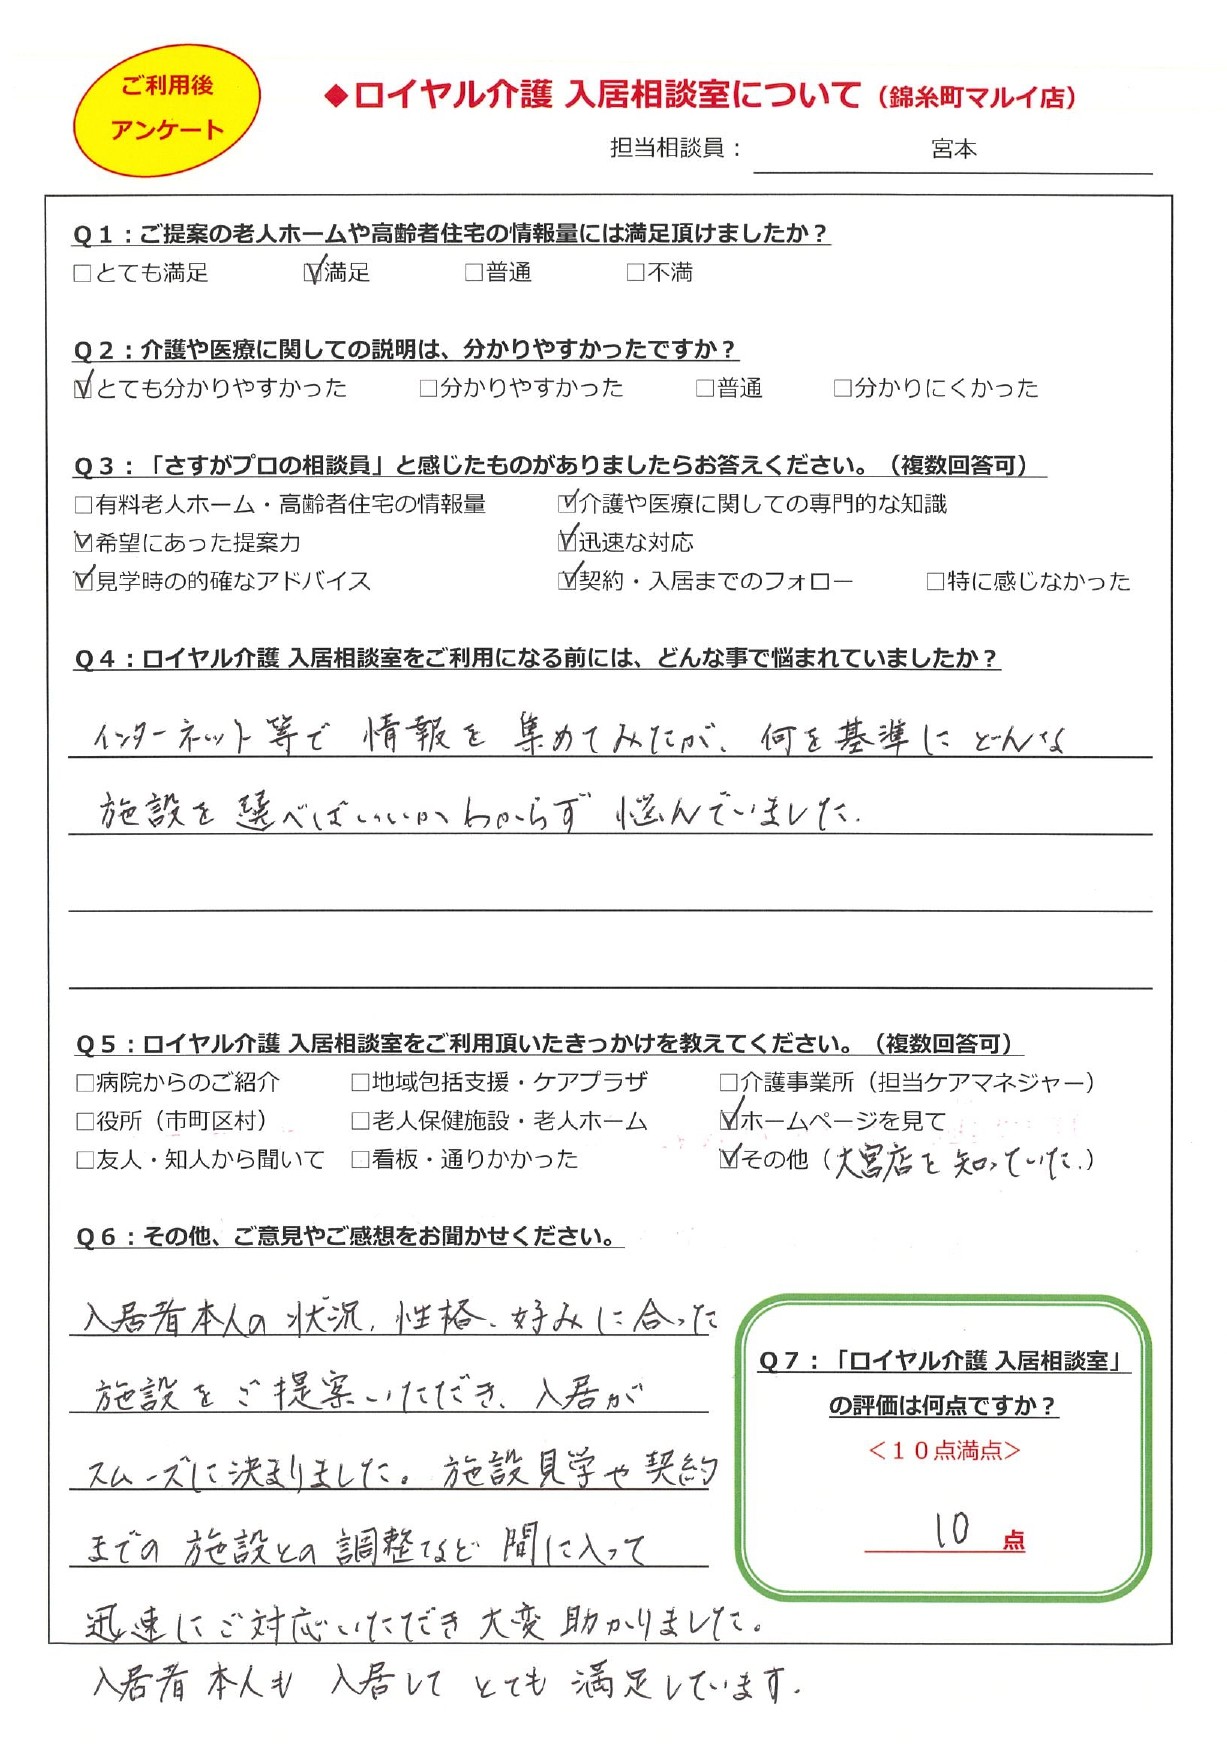 ご利用後
アンケート
◆ロイヤル介護 入居相談室について（錦糸町マルイ店）
担当相談員： 宮本
Ｑ１：ご提案の老人ホームや高齢者住宅の情報量には満足頂けましたか？
□とても満足 ☑満足 □普通 □不満
Ｑ２：介護や医療に関しての説明は、分かりやすかったですか？
☑とても分かりやすかった □分かりやすかった □普通 □分かりにくかった
Ｑ３：「さすがプロの相談員」と感じたものがありましたらお答えください。（複数回答可）
□有料老人ホーム・高齢者住宅の情報量 ☑介護や医療に関しての専門的な知識
☑希望にあった提案力 ☑迅速な対応
☑見学時の的確なアドバイス ☑契約・入居までのフォロー □特に感じなかった
Ｑ４：ロイヤル介護 入居相談室をご利用になる前には、どんな事で悩まれていましたか？
インターネット等で 情報を 集めてみたが、何を基準に どんな
施設を 選べばいいか わからず 悩んでいました.
Ｑ５：ロイヤル介護 入居相談室をご利用頂いたきっかけを教えてください。（複数回答可）
□病院からのご紹介 □地域包括支援・ケアプラザ □介護事業所（担当ケアマネジャー）
□役所（市町区村） □老人保健施設・老人ホーム ☑ホームページを見て
□友人・知人から聞いて □看板・通りかかった ☑その他（大宮店を 知っていた.）
Ｑ６：その他、ご意見やご感想をお聞かせください。
入居者本人の 状況、性格、好みに 合った
施設を ご提案いただき、入居が
スムーズに決まりました。施設見学や契約
までの 施設との 調整など 間に入って
迅速に ご対応いただき 大変 助かりました。
入居者 本人も 入居して とても 満足しています.
Ｑ７：「ロイヤル介護 入居相談室」
の評価は何点ですか？
＜１０点満点＞
10 点